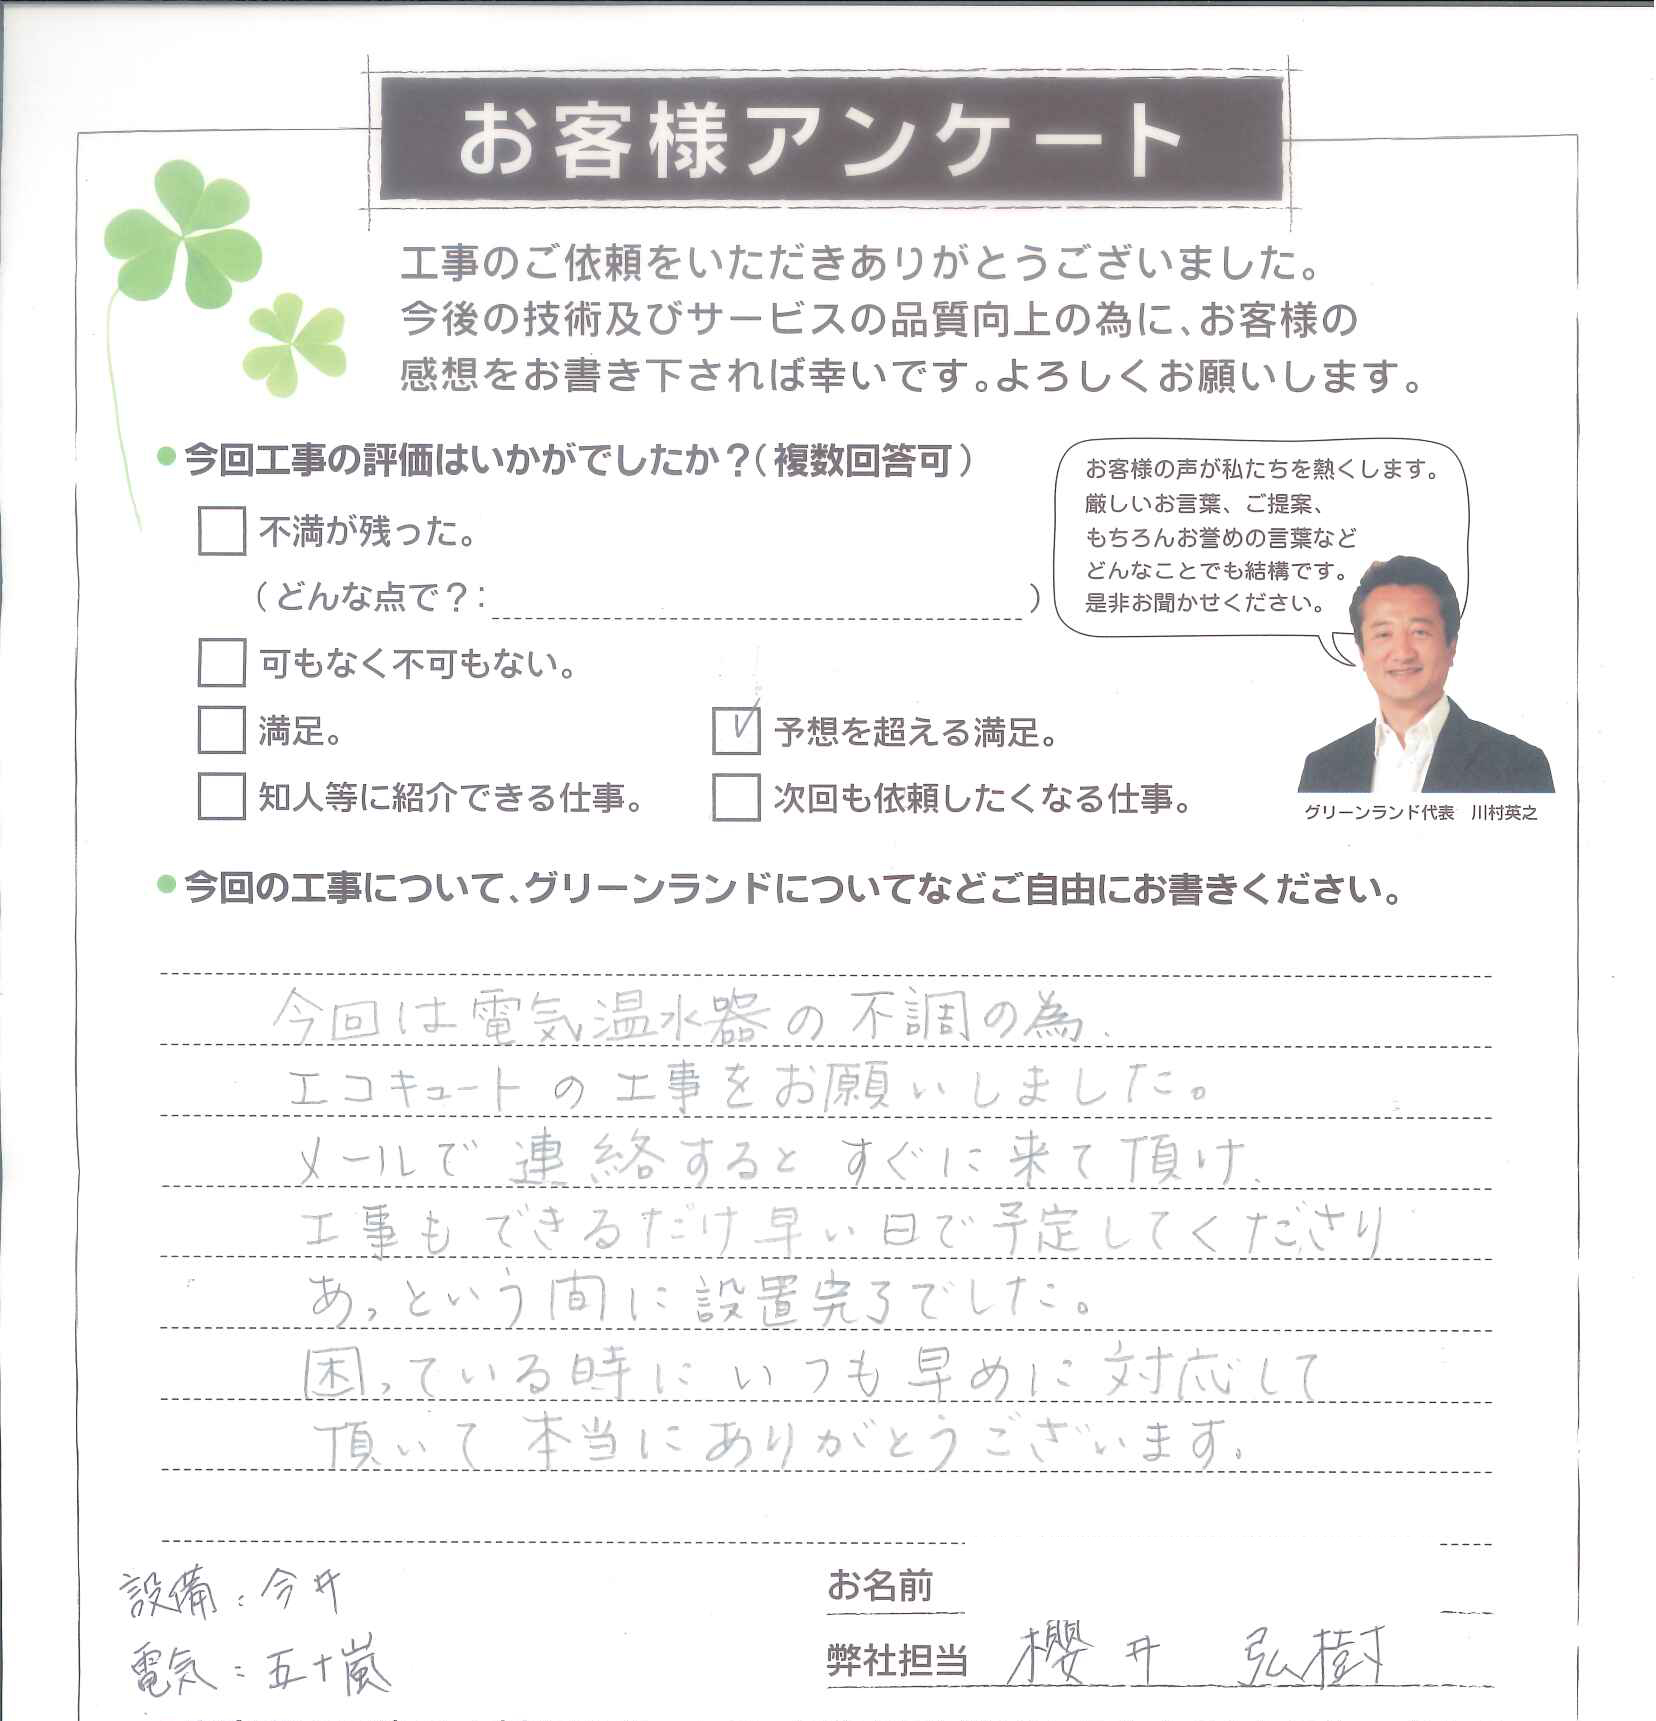 お客様アンケート
工事のご依頼をいただきありがとうございました。
今後の技術及びサービスの品質向上の為に、お客様の
感想をお書き下されば幸いです。よろしくお願いします。
今回工事の評価はいかがでしたか？（複数回答可）
不満が残った。
（どんな点で？：　）
可もなく不可もない。
満足。
予想を超える満足。
知人等に紹介できる仕事。
次回も依頼したくなる仕事。
お客様の声が私たちを熱くします。
厳しいお言葉、ご提案、
もちろんお誉めの言葉など
どんなことでも結構です。
是非お聞かせください。
グリーンランド代表　川村英之
今回の工事について、グリーンランドについてなどご自由にお書きください。
今回は電気温水器の不調の為、
エコキュートの工事をお願いしました。
メールで連絡するとすぐに来て頂け、
工事もできるだけ早い日で予定してくださり
あっという間に設置完了でした。
困っている時にいつも早めに対応して
頂いて本当にありがとうございます。
設備：今井
電気：五十嵐
お名前
弊社担当　櫻井　弘樹